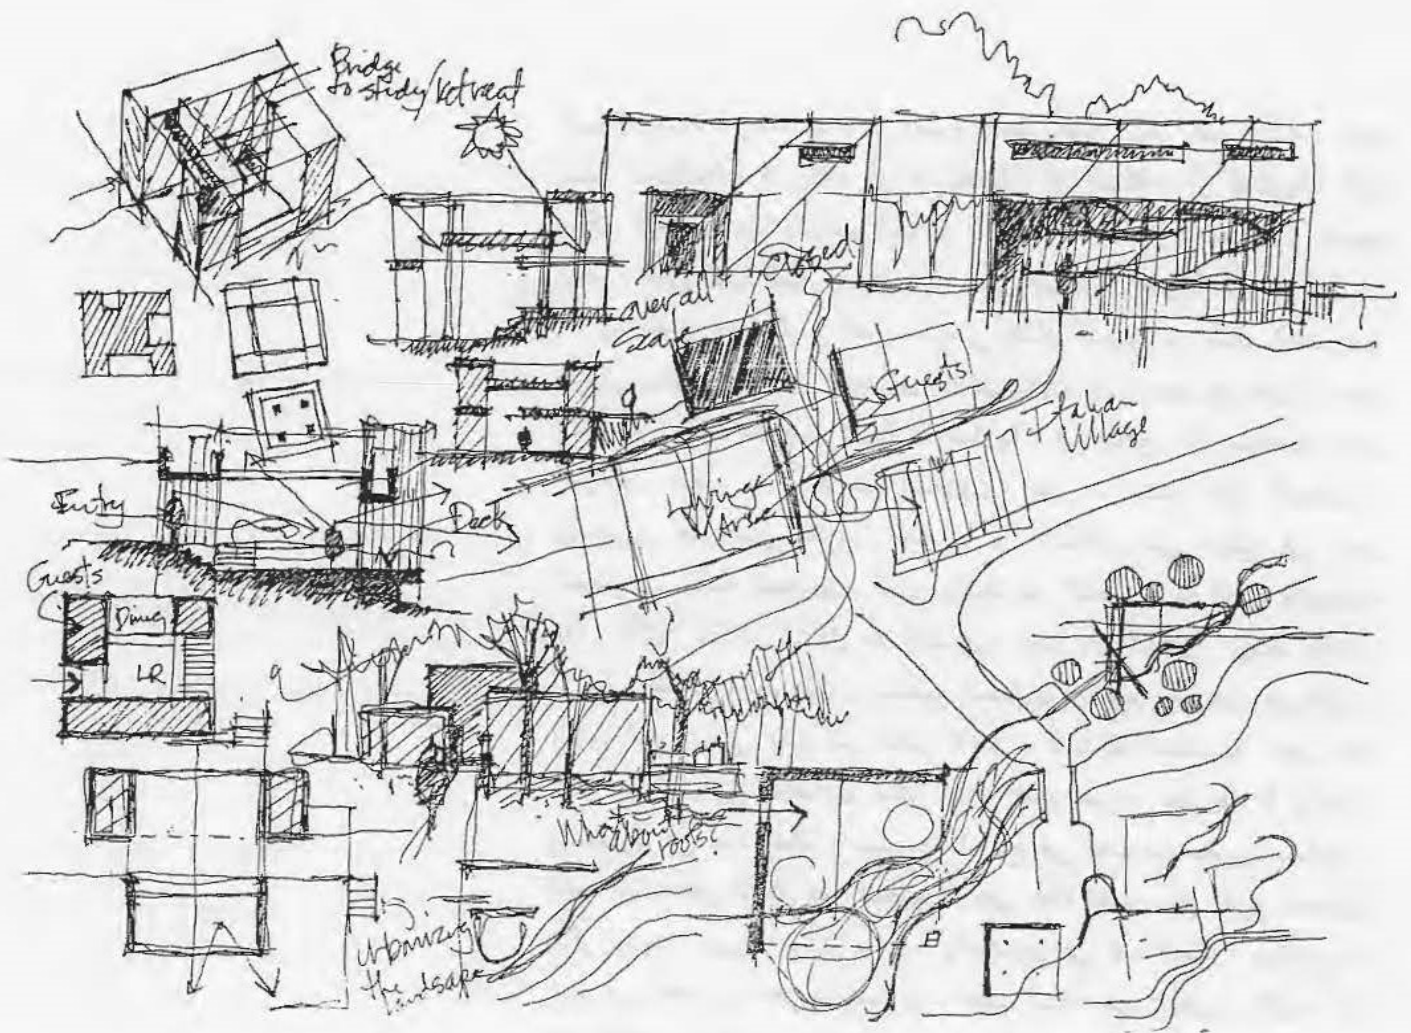 Bridge
to study/Retreat
closed
overall
Scale
Guests
Italian
Village
Living
Area
Entry
Deck
Guests
Dining
LR
What
about
roofs?
Urbanizing
the
landscape